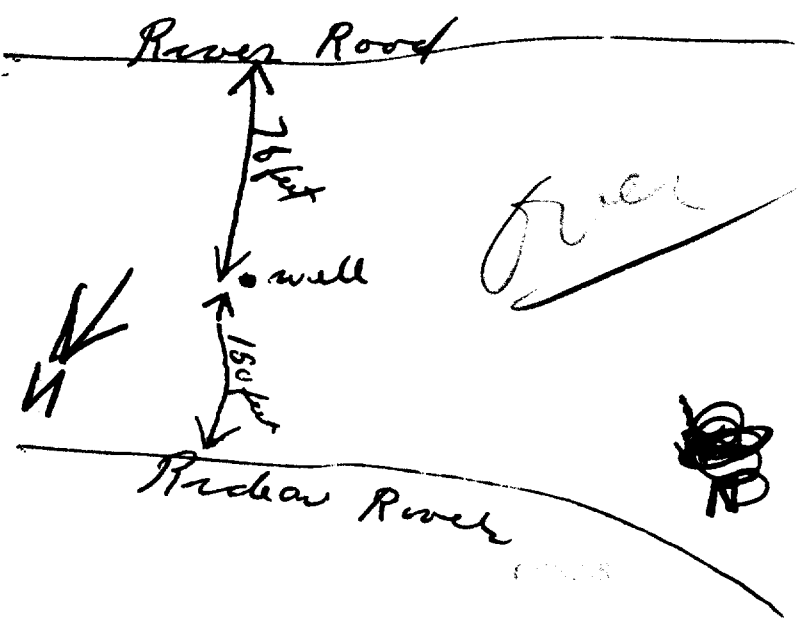 River Road
78 feet
well
150 feet
N
Rideau River